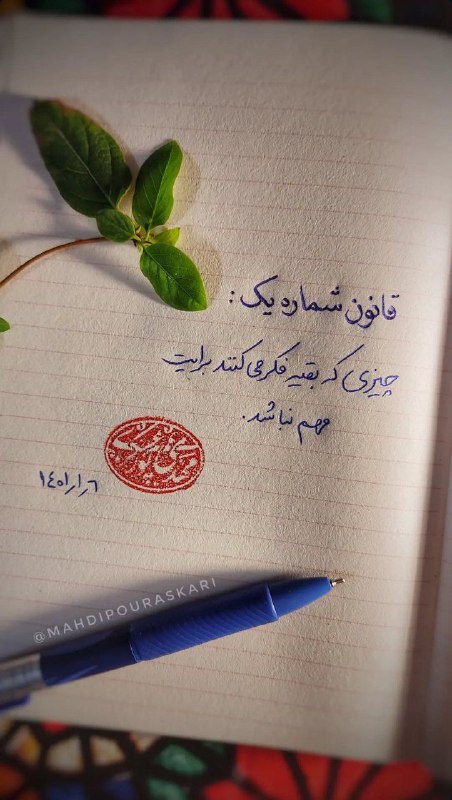 قانون شماره یک:
چیزی که بقیه فکر می‌کنند برایت
مهم نباشد.
@MAHDIPOURASKARI